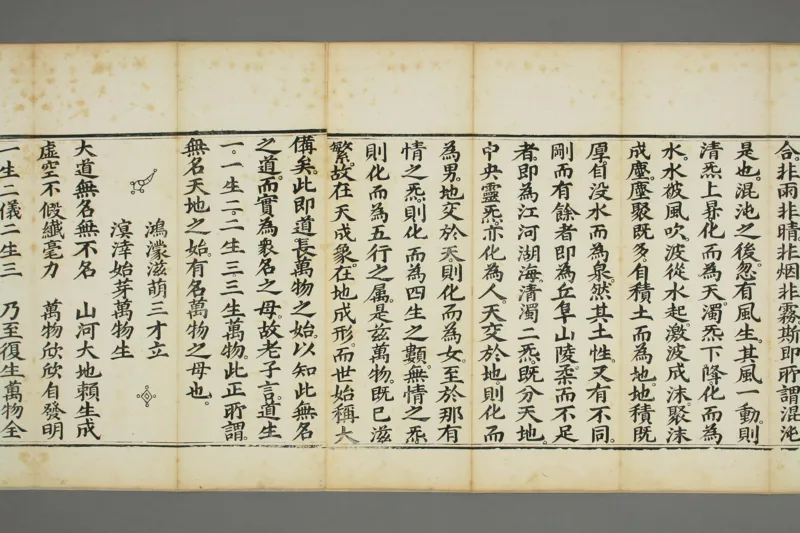 合。非雨非晴非烟非霧。斯即所謂混沌
是也。混沌之後。忽有風生。其風一動。則
清炁上昇。化而為天。濁炁下降。化而為
水。水被風吹。波從水起。激波成沫。聚沫
成塵。塵聚既多。自積土而為地。地積既
厚。自没水而為泉。然其土性又有不同。
剛而有餘者。即為丘阜山陵。柔而不足
者。即為江河湖海。清濁二炁。既分天地。
中央靈炁。亦化為人。天交於地。則化而
為男。地交於天。則化而為女。至於那有
情之炁。則化而為四生之類。無情之炁
則化而為五行之属。是玆萬物。既已滋
繁。故在天成象。在地成形。而世始稱大
備矣。此即道長萬物之始。以知此無名
之道。而實為衆名之母。故老子言。道生
一。一生二。二生三。三生萬物。此正所謂。
無名天地之始。有名萬物之母也。
鴻濛滋萌三才立
溟涬始芽萬物生
大道無名無不名 山河大地賴生成
虛空不假纖毫力 萬物欣欣自發明
一生二儀二生三 乃至復生萬物全